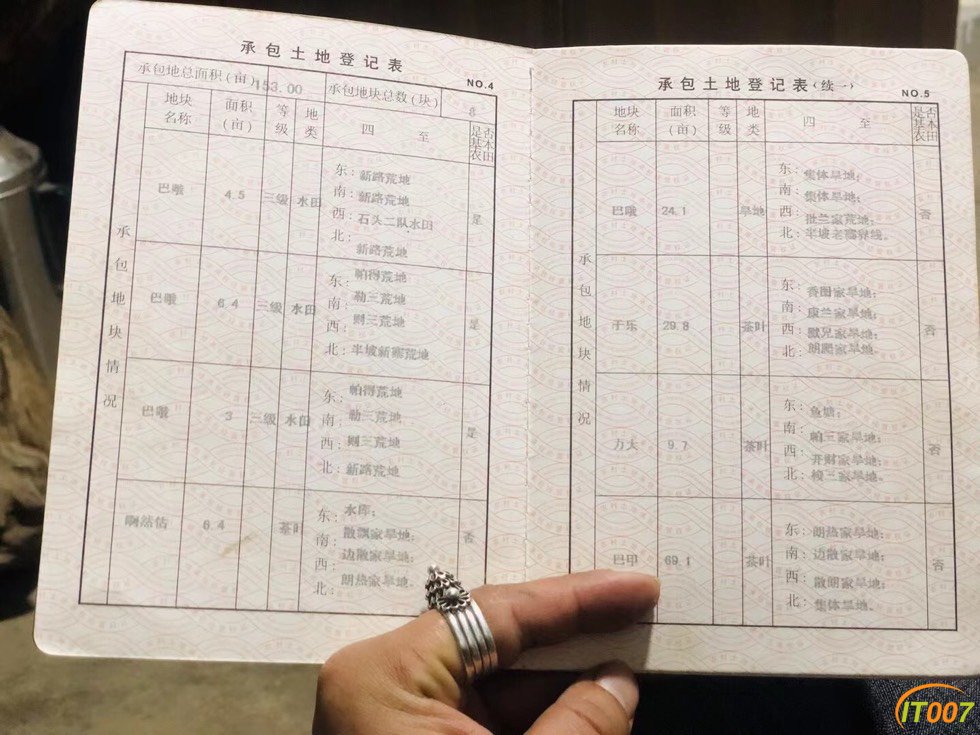 承包土地登记表
NO.4
承包地总面积(亩) 153.00 承包地块总数(块) 8
地块名称 面积(亩) 等级 地类 四至 是否基本农田
承包地块情况
巴哦 4.5 三级 水田 是
东：新路荒地
南：新路荒地
西：石头二队水田
北：新路荒地
巴哦 6.4 三级 水田 是
东：帕得荒地
南：勒三荒地
西：则三荒地
北：半坡新寨荒地
巴哦 3 三级 水田 是
东：帕得荒地
南：勒三荒地
西：则三荒地
北：新路荒地
啊然估 6.4 茶叶 否
东：水库；
南：散飘家旱地；
西：边散家旱地；
北：朗热家旱地。
承包土地登记表(续一)
NO.5
地块名称 面积(亩) 等级 地类 四至 是否基本农田
承包地块情况
巴哦 24.1 旱地 否
东：集体旱地；
南：集体旱地；
西：批兰家荒地；
北：半坡老寨界线。
于乐 29.8 茶叶 否
东：香图家旱地；
南：康兰家旱地；
西：家旱地；
北：朗爬家旱地。
方大 9.7 茶叶 否
东：鱼塘；
南：帕三家旱地；
西：开则家旱地；
北：梭三家旱地。
巴甲 69.1 茶叶 否
东：朗热家旱地；
南：边散家旱地；
西：散朗家旱地；
北：集体旱地。
IT007